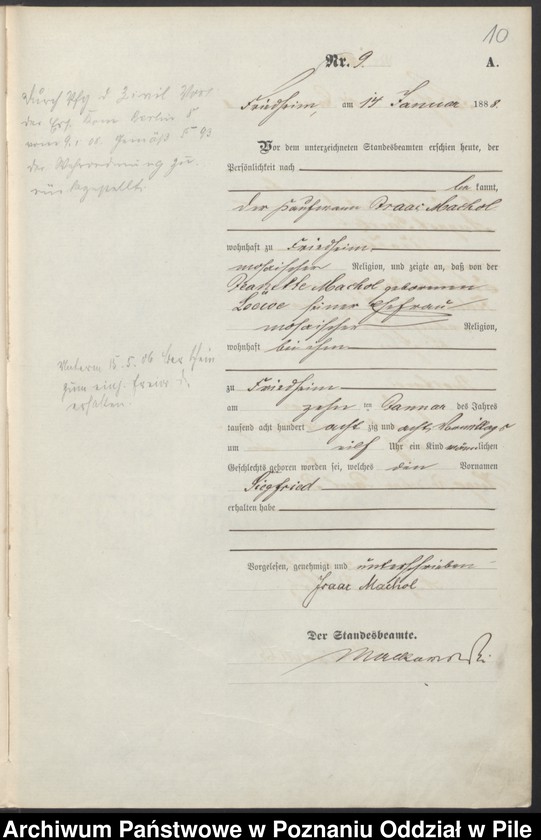 10
Nr. 9. A.
Friedheim, am 14 Januar 1888.
Vor dem unterzeichneten Standesbeamten erschien heute, der
Persönlichkeit nach
be kannt,
der Kaufmann Isaac Machol
wohnhaft zu Friedheim
mosaischer Religion, und zeigte an, daß von der
Jeanette Machol geborenen
Loewe seiner Ehefrau
mosaischer Religion,
wohnhaft bei ihm
zu Friedheim
am zehn ten Januar des Jahres
tausend acht hundert acht zig und acht Vormittags
um eilf Uhr ein Kind männlichen
Geschlechts geboren worden sei, welches den Vornamen
Siegfried
erhalten habe
Vorgelesen, genehmigt und unterschrieben
Isaac Machol
Der Standesbeamte.
durch Vfg d Zivil Vors.
der Ers. Kom Berlin
vom 9.1. gemäß § 93
der Wehrordnung zu-
rückgestellt
Unterm 15.5.06 Ber Schein
zum einj. freiw
erhalten
Archiwum Państwowe w Poznaniu Oddział w Pile